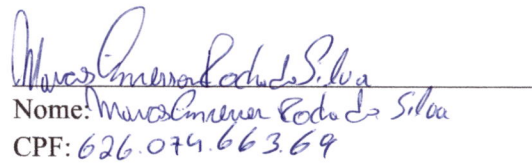 Marcos Emerson Rocha da Silva
Nome: Marcos Emerson Rocha da Silva
CPF: 626.074.663.69